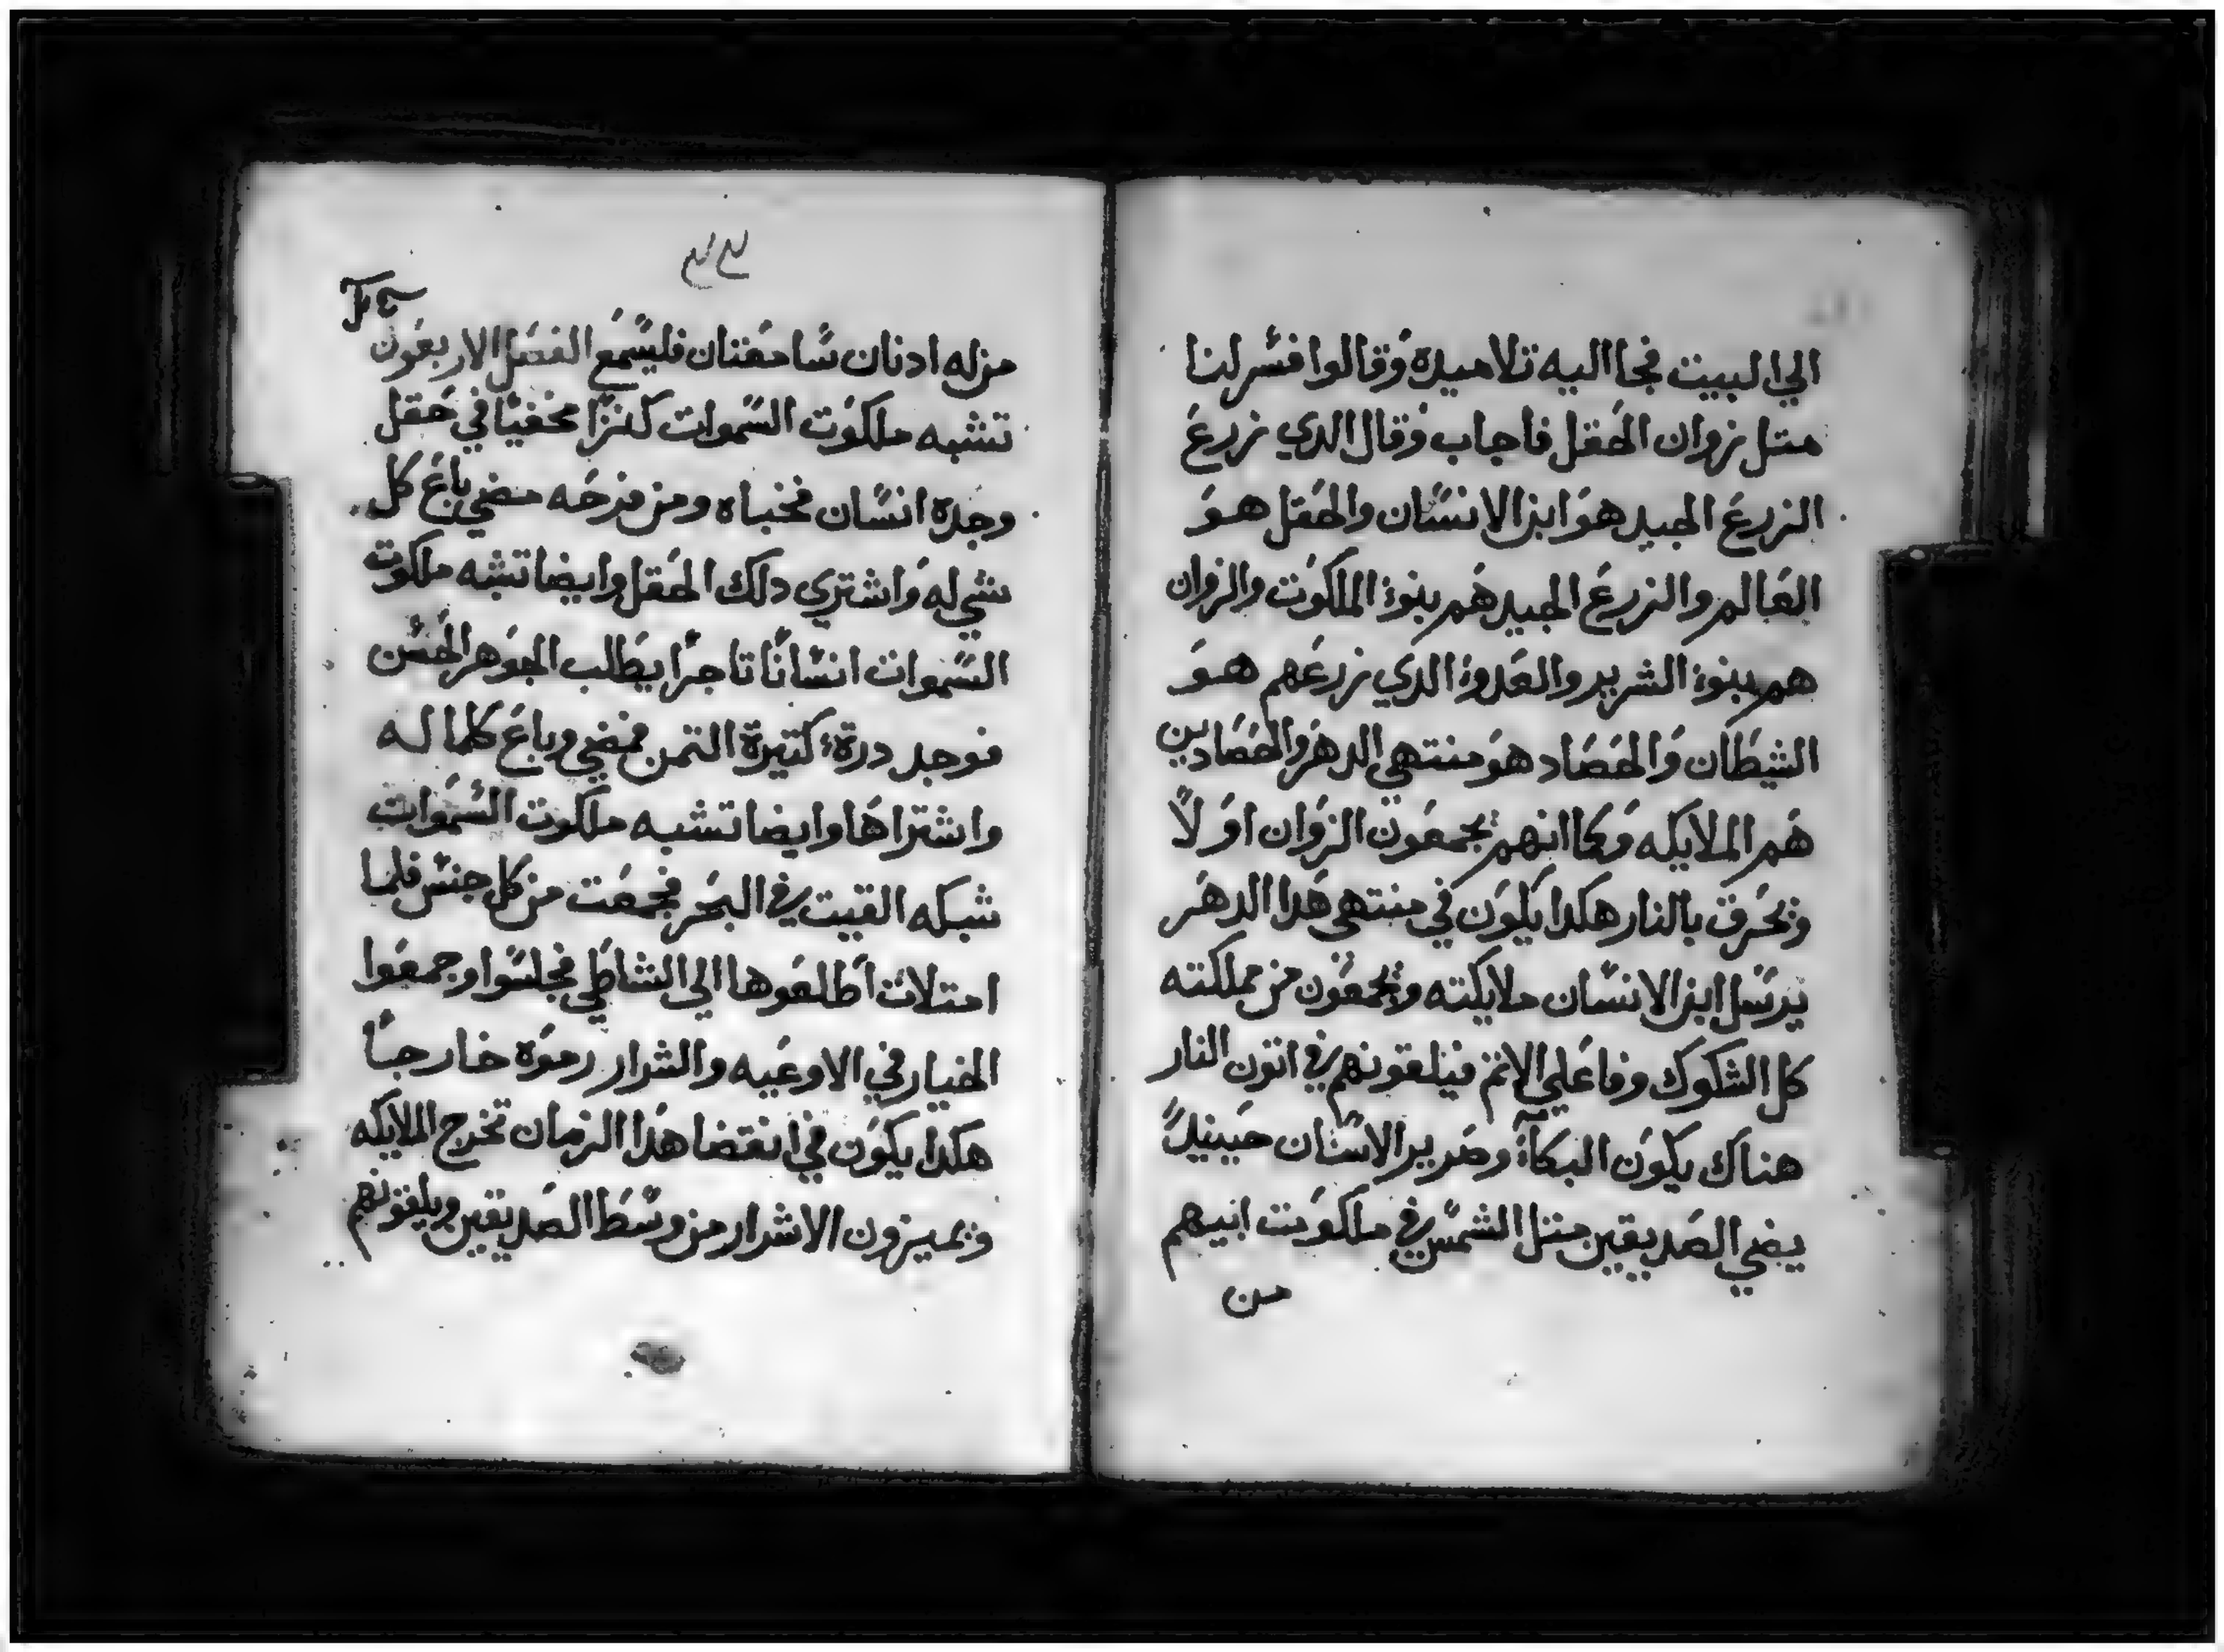 الي البيت فجا اليه تلاميده وقالوا فسر لنا
متل زوان الحقل فاجاب وقال الدي زرع
الزرع الجيد هو ابن الانسان والحقل هو
العالم والزرع الجيد هم بنوا الملكوت والزوان
هم بنوا الشرير والعدوا الدي زرعهم هو
الشيطان والحصاد هو منتهي الدهر والحصادين
هم الملايكه وكما انهم يجمعون الزوان اولاً
ويحرق بالنار هكدا يكون في منتهي هدا الدهر
يرسل ابن الانسان ملايكته ويجمعون من مملكته
كل الشكوك وفاعلي الاتم فيلقونهم في اتون النار
هناك يكون البكاء وصرير الاسنان حينيدً
يضي الصديقين متل الشمس في ملكوت ابيهم
من
من له ادنان سامعتان فليسمع الفصل الاربعون
تشبه ملكوت السموات كنزا مخفيا في حقل
وجده انسان فخباه ومن فرحه مضي باع كل
شي له واشتري دلك الحقل وايضا تشبه ملكوت
السموات انسانا تاجرا يطلب الجوهر الحسن
فوجد درة كتيرة التمن فمضي وباع كلما له
واشتراها وايضا تشبه ملكوت السموات
شبكه القيت في البحر فجمعت من كل جنس فلما
امتلات اطلعوها الي الشاطي فجلسوا وجمعوا
الخيار في الاوعيه والشرار رموه خارجاً
هكدا يكون في انقضا هدا الزمان تخرج الملايكه
ويميزون الاشرار من وسط الصديقين ويلقونهم